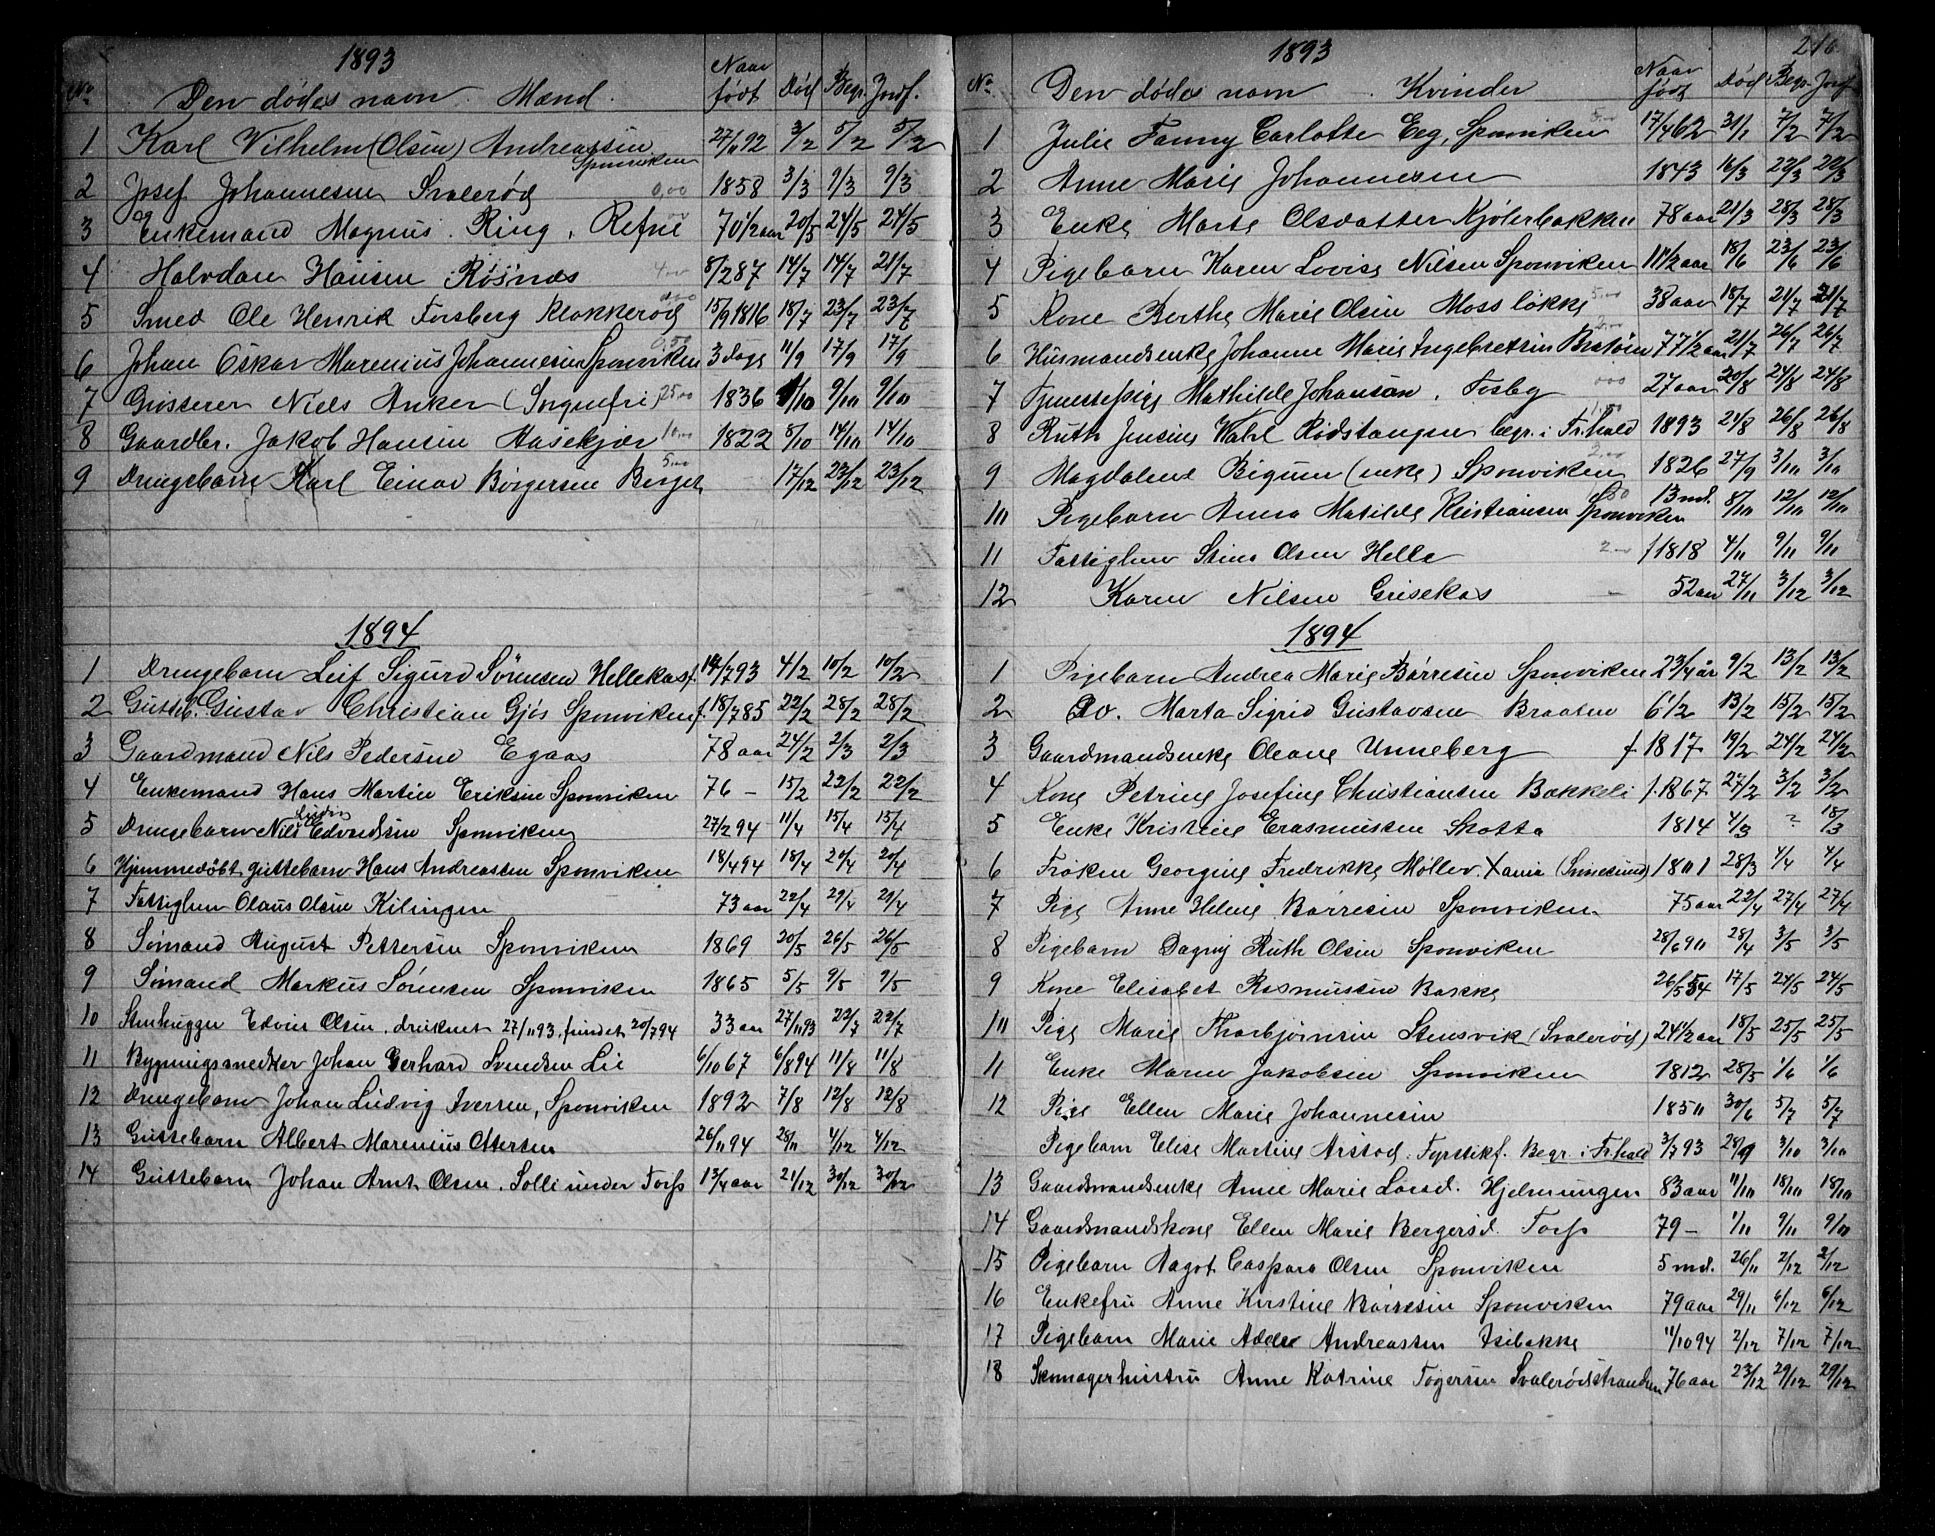 1893
No. Den dødes navn. Mænd. Naar født Død Begr. Jordf.
1 Karl Vilhelm (Olsen) Andreassen Sponviken 27/11 92 3/2 5/2 5/2
2 Josef Johannesen Svalerød 0,00 1858 3/3 9/3 9/3
3 Enkemand Magnus Ring, Refne 70 1/2 aar 20/5 24/5 24/5
4 Halvdan Hansen Røsnæs 4,00 8/2 87 14/7 14/7 21/7
5 Smed Ole Henrik Forsberg Klokkerød 15/9 1816 18/7 23/7 23/7
6 Johan Oskar Marenius Johannesen Sponviken 0,50 3 dage 11/9 17/9 17/9
7 Grosserer Niels Anker (Sorgenfri) 25,00 1836 1/10 9/10 9/10
8 Gaardbr. Jakob Hansen Hasekjær 10,00 1822 8/10 14/10 14/10
9 Drengebarn Karl Einar Børgersen Berget 5,00 17/12 23/12 23/12
1894
1 Drengebarn Leif Sigurd Sørensen Hellekas f. 14/7 93 4/2 10/2 10/2
2 Gutteb. Gustav Christian Gjøs Sponviken f. 18/7 85 22/2 28/2 28/2
3 Gaardmand Nils Pedersen Egaas 78 aar 24/2 2/3 2/3
4 Enkemand Hans Martin Eriksen Sponviken 76 – 15/2 22/2 22/2
5 Drengebarn Nils Ludvig Edvardsen Sponviken 27/2 94 11/4 15/4 15/4
6 Hjemmedøbt guttebarn Hans Andreassen Sponviken 18/4 94 18/4 20/4 20/4
7 Fattiglem Olaus Olsen Kilingen 73 aar 22/4 29/4 29/4
8 Sømand August Pettersen Sponviken 1869 20/5 26/5 26/5
9 Sømand Markus Sørensen Sponviken 1865 5/5 9/5 9/5
10 Stenhugger Edvin Olsen. druknet 27/11 93, fundet 20/7 94 33 aar 27/11 93 22/7 22/7
11 Bygningssnedker Johan Gerhard Svendsen Lie 6/10 67 6/8 94 11/8 11/8
12 Drengebarn Johan Ludvig Iversen, Sponviken 1892 7/8 12/8 12/8
13 Guttebarn Albert Marenius Ottersen 26/11 94 28/11 4/12 4/12
14 Guttebarn Johan Arnt Olsen. Solli under Torp 1 3/4 aar 21/12 30/12 30/12
216
1893
No. Den dødes navn – Kvinder Naar født Død Begr. Jordf
1 Julie Fanny Carlotte Eeg, Sponviken 5,00 17/4 62 31/1 7/2 7/2
2 Anne Marie Johannesen 1843 16/3 22/3 22/3
3 Enke Marte Olsdatter Kjølerbakken 78 aar 21/3 28/3 28/3
4 Pigebarn Karen Lovise Nilsen Sponviken 11 1/2 aar 18/6 23/6 23/6
5 Kone Berthe Marie Olsen Mossløkke 5,00 38 aar 18/7 21/7 21/7
6 Husmandsenke Johanne Marie Ingebretsen Bratøen 2,00 77 1/2 aar 21/7 26/7 26/7
7 Tjenestepige Mathilde Johansen. Tosby 0,00 27 aar 20/8 24/8 24/8
8 Ruth Jensine Wahl Rødstangen begr. i Fr.hald 1,00 1893 24/8 26/8 26/8
9 Magdalene Bigum (enke) Sponviken 2,00 1826 27/9 3/10 3/10
10 Pigebarn Anna Matilde Kristiansen Sponviken 13 md. 8/10 12/10 12/10
11 Fattiglem Stine Olsen Helle 2,00 f 1818 4/11 9/11 9/11
12 Karen Nilsen Grisekas – 52 aar 27/11 3/12 3/12
1894
1 Pigebarn Andrea Marie Børresen Sponviken 2 3/4 år 9/2 13/2 13/2
2 Do. Marta Sigrid Gustavsen Braaten 6 1/2 13/2 15/2 15/2
3 Gaardmandsenke Oleane Unneberg f 1817 19/2 24/2 24/2
4 Kone Petrine Josefine Christiansen Bakkeli f. 1867 27/2 3/2 3/2
5 Enke Kristine Erasmussen Skotta 1814 4/3 ? 18/3
6 Frøken Georgine Fredrikke Møller (Svinesund) 1801 28/3 4/4 4/4
7 Pige Anne Helene Børresen Sponviken 75 aar 22/4 27/4 27/4
8 Pigebarn Dagny Ruth Olsen Sponviken 28/6 90 28/4 3/5 3/5
9 Kone Elisabet Rasmussen Bakke 26/5 54 17/5 24/5 24/5
10 Pige Marie Thorbjørnsen Stensvik (Svalerød) 24 1/2 aar 18/5 25/5 25/5
11 Enke Maren Jakobsen Sponviken 1812 28/5 1/6 1/6
12 Pige Ellen Marie Johannesen 1850 30/6 5/7 5/7
Pigebarn Elise Martine Arstad. Fyrstikf. Begr. i Fr.hald 3/7 93 28/9 3/10 3/10
13 Gaardmandsenke Anne Marie Larsd. Hjelmungen 83 aar 11/10 18/10 18/10
14 Gaardmandskone Ellen Marie Bergersd. Torp 79 – 1/11 9/11 9/11
15 Pigebarn Aagot Caspara Olsen Sponviken 5 md. 26/11 2/12 2/12
16 Enkefru Anne Kirstine Børresen Sponviken 79 aar 29/11 6/12 6/12
17 Pigebarn Marie Adele Andreassen Isebakke 11/10 94 2/12 7/12 7/12
18 Skomagerhustru Anne Katrine Togersen Svalerødstranden 76 aar 23/12 29/12 29/12